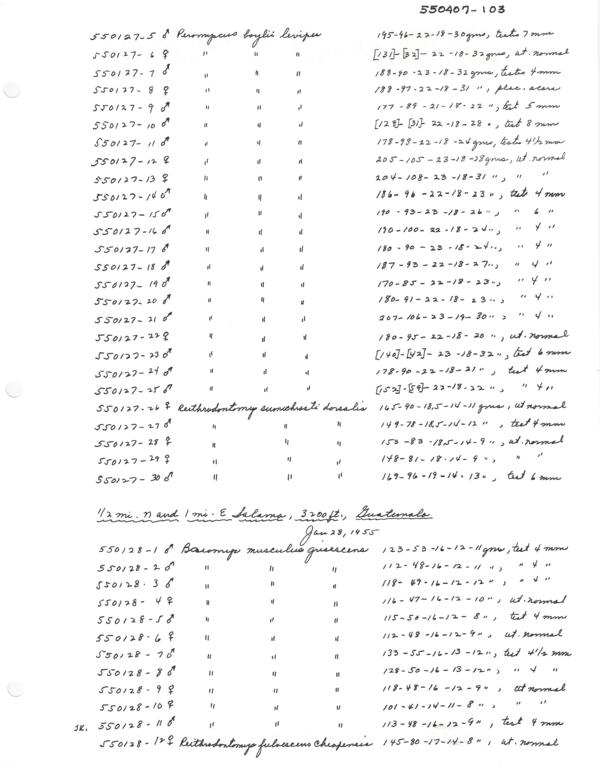 550407-103
550127-5 ♂ Peromyscus boylii levipes 195-96-22-18-30 gms, testes 7 mm
550127-6 ♀ " " " [131]-[32]-22-18-32 gms, ut. normal
550127-7 ♂ " " " 188-90-23-18-32 gms, testes 4 mm
550127-8 ♀ " " " 188-97-22-18-31 ", plac. scars
550127-9 ♂ " " " 177-89-21-18-22 ", test 5 mm
550127-10 ♂ " " " [128]-[31]-22-18-28 ", test 8 mm
550127-11 ♂ " " " 178-98-22-18-24 gms, testes 4 1/2 mm
550127-12 ♀ " " " 205-105-23-18-28 gms, ut. normal
550127-13 ♀ " " " 204-108-23-18-31 ", " "
550127-14 ♂ " " " 186-96-22-18-23 ", test 4 mm
550127-15 ♂ " " " 190-93-23-18-26 ", " 6 "
550127-16 ♂ " " " 190-100-22-18-24 ", " 4 "
550127-17 ♂ " " " 180-90-23-18-24 ", " 4 "
550127-18 ♂ " " " 187-93-22-18-27 ", " 4 "
550127-19 ♂ " " " 170-85-22-18-23 ", " 4 "
550127-20 ♂ " " " 180-91-22-18-23 ", " 4 "
550127-21 ♂ " " " 207-106-23-19-30 ", " 4 "
550127-22 ♀ " " " 180-95-22-18-20 ", ut. normal
550127-23 ♂ " " " [140]-[42]-23-18-32 ", test 6 mm
550127-24 ♂ " " " 178-90-22-18-21 ", test 4 mm
550127-25 ♂ " " " [152]-[59]-22-18-22 ", " 4 "
550127-26 ♀ Reithrodontomys sumichrasti dorsalis 165-90-18.5-14-11 gms, ut normal
550127-27 ♂ " " " 149-78-18.5-14-12 ", test 4 mm
550127-28 ♀ " " " 153-83-18.5-14-9 ", ut. normal
550127-29 ♀ " " " 148-81-18-14-9 ", " "
550127-30 ♂ " " " 169-96-19-14-13 ", test 6 mm
1/2 mi. N and 1 mi. E Salama, 3200 ft., Guatemala
Jan 28, 1955
550128-1 ♂ Baiomys musculus grisescens 123-53-16-12-11 gms, test 4 mm
550128-2 ♂ " " " 112-48-16-12-11 ", " 4 "
550128-3 ♂ " " " 118-49-16-12-12 ", " 4 "
550128-4 ♀ " " " 116-47-16-12-10 ", ut. normal
550128-5 ♂ " " " 115-50-16-12-8 ", test 4 mm
550128-6 ♀ " " " 112-48-16-12-9 ", ut. normal
550128-7 ♂ " " " 133-55-16-13-12 ", test 4 1/2 mm
550128-8 ♂ " " " 128-50-16-13-12 ", " 4 "
550128-9 ♀ " " " 118-48-16-12-9 ", ut normal
550128-10 ♀ " " " 101-41-14-11-8 ", " "
SK. 550128-11 ♂ " " " 113-48-16-12-9 ", test 4 mm
550128-12 ♀ Reithrodontomys fulvescens chiapensis 145-80-17-14-8 ", ut. normal